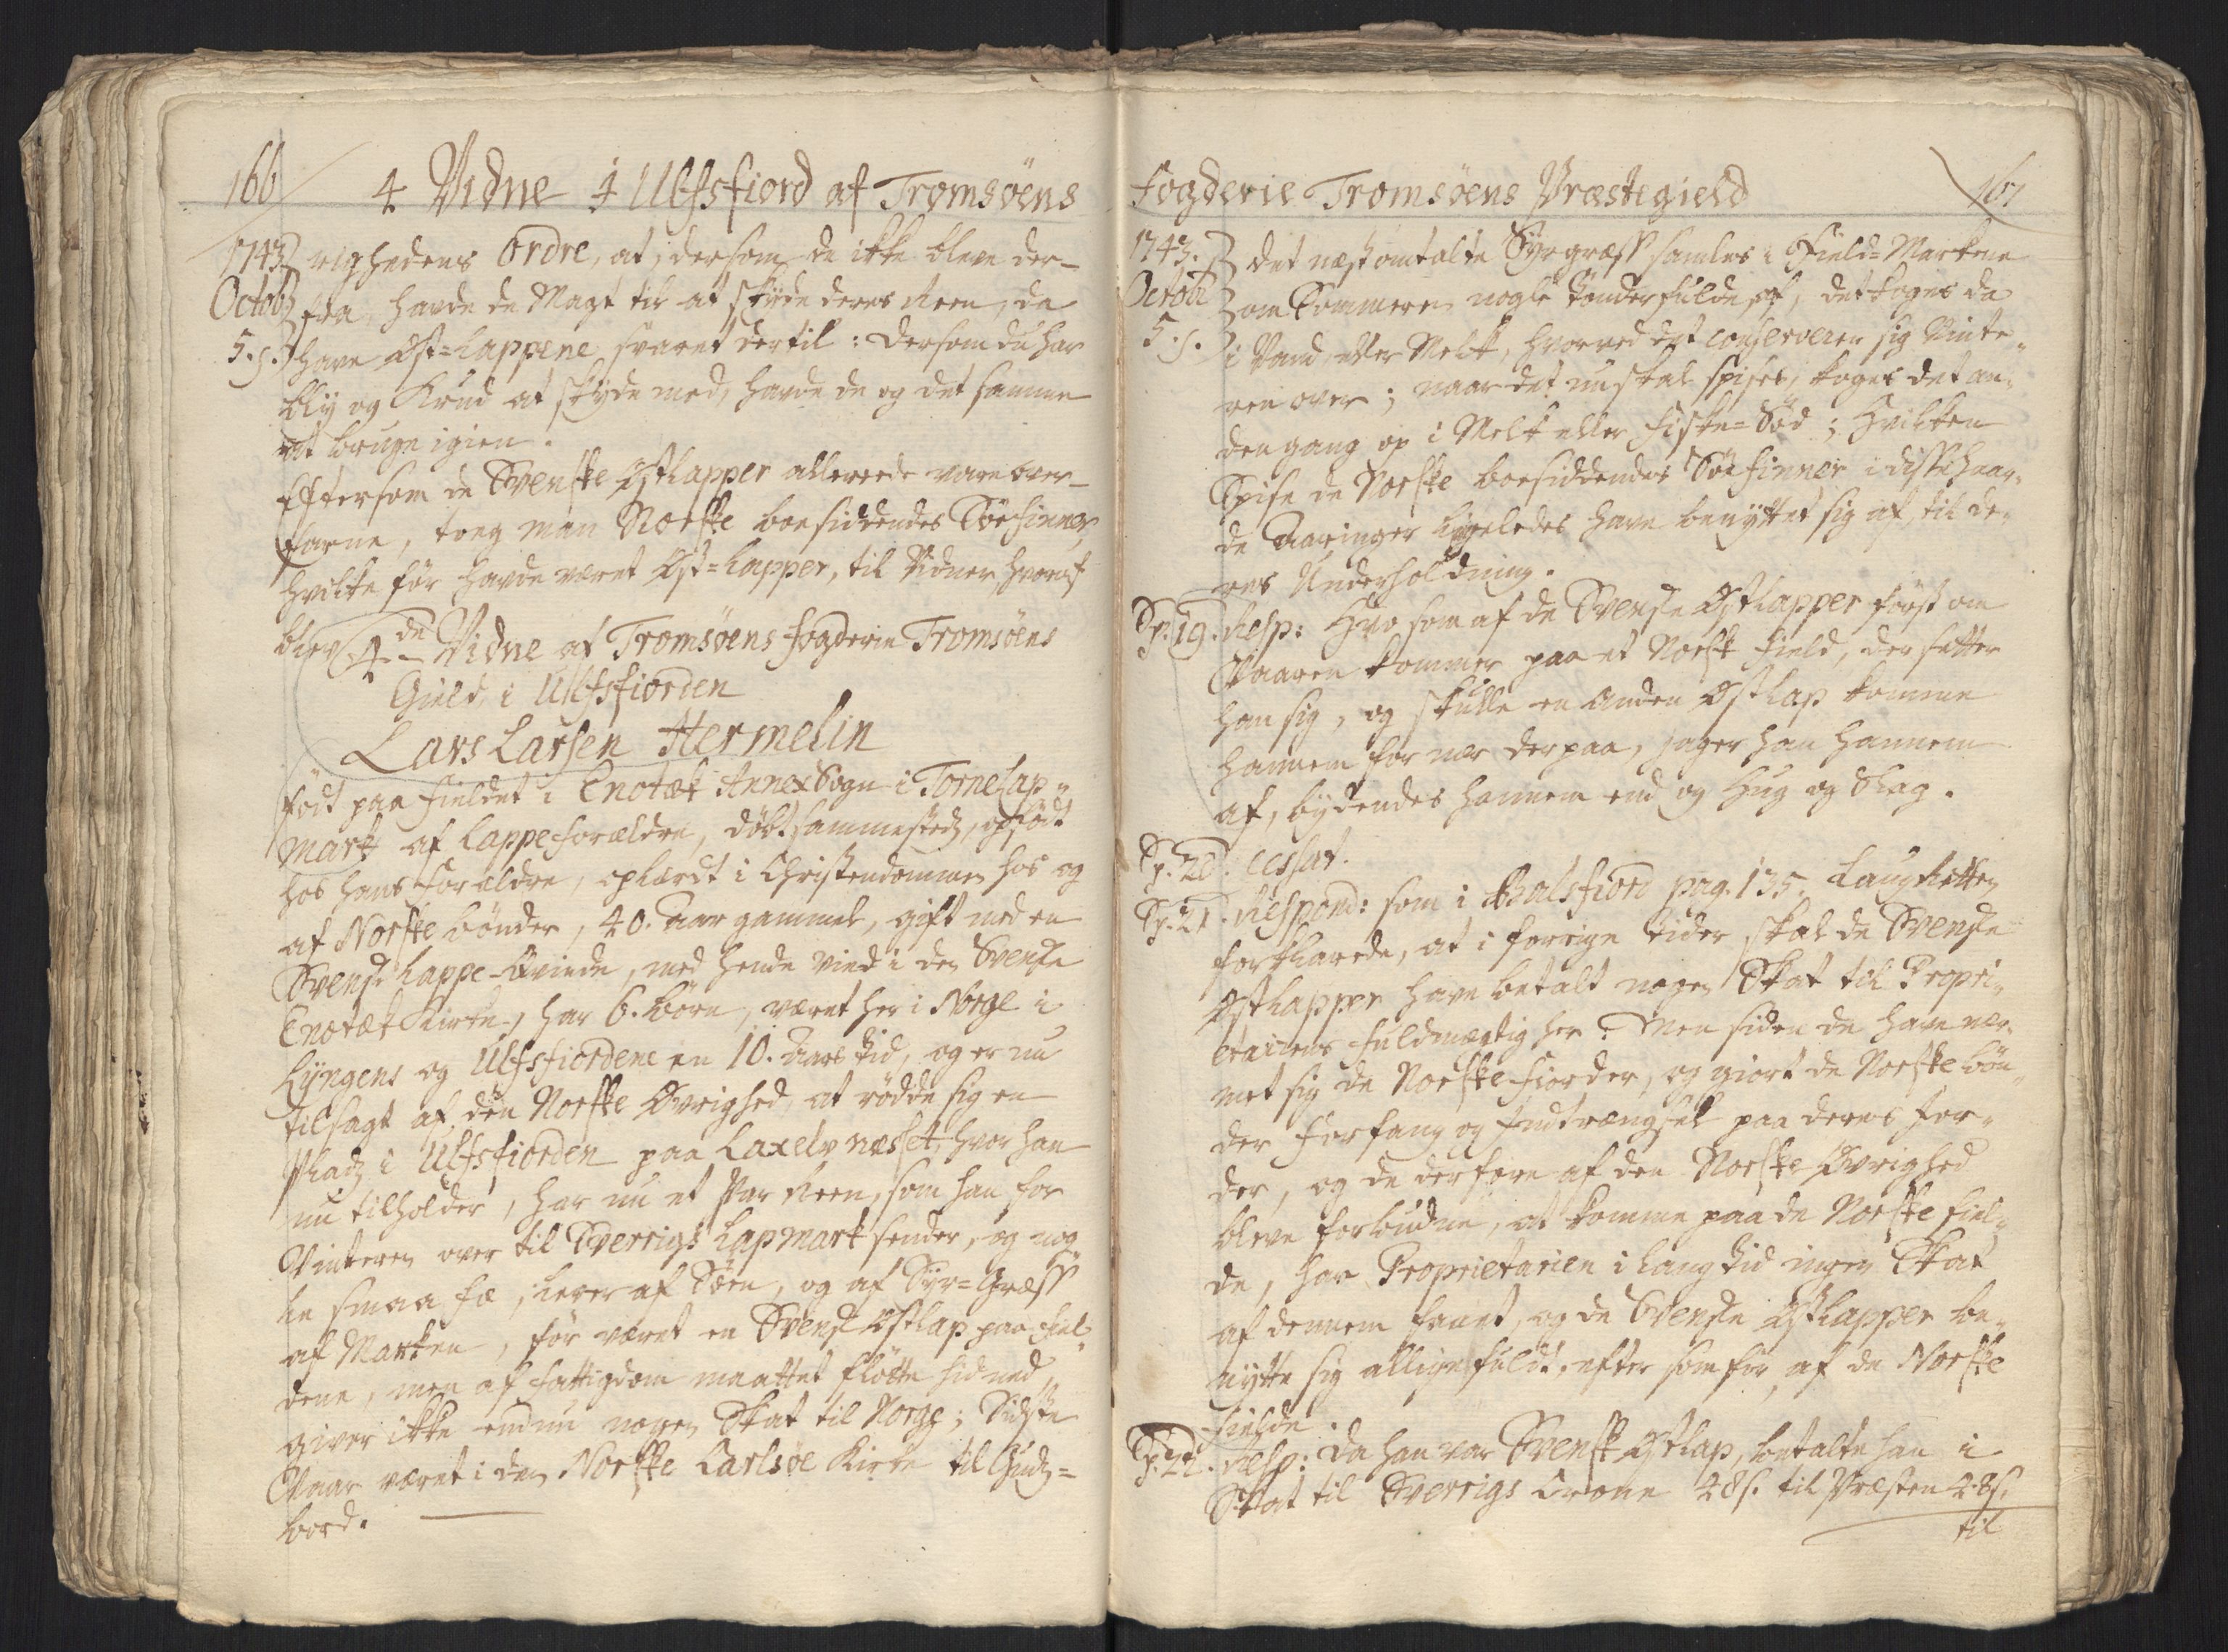 166
4 Vidne i Ulfsfiord af Tromsöens
1743
Octob:
5. s.
righedens Ordre, at, dersom de ikke bleve der-
fra, havde de Magt til at skyde deres Reen, da
have Øst-Lapperne svaret dertil: dersom du har
bly og Krud at skyde med, havde de og det samme
at bruge igien.
Eftersom de Svenske Østlapper allereede vare bort-
farne, tog man Norske boesiddendes Söefinner,
hvilke för havde været Øst-Lapper, til Vidner, hvoraf
blev 4de Vidne af Tromsöens Fogderie Tromsöens
Gield, i Ulfsfiorden
Lars Larsen Hermelin
födt paa Fieldet i Enotæk Annex Sogn i Torne Lap-
mark af Lappeforældre, döbt sammesteds, opfödt
hos hans Forældre, oplærdt i Christendommen hos og
af Norske bönder, 40. Aar gammel, gift med en
Svensk Lappe-Qvinde, med hende Viet i den Svenske
Enotæk Kirke, har 6. börn, været her i Norge i
Lyngens og Ulfsfiordene en 10. Aars tid, og er nu
tilsagt af den Norske Øvrighed at rödde sig en
Plads i Ulfsfiorden paa Laxelv næsset, hvor han
nu tilholder, har nu et Par Reen, som han for
Vinteren over til Sverrigs Lapmark sender, og nog-
le smaa fæ, lever af Söen, og af Syr-Græss
af Marken, för været en Svensk Østlap paa Fiel-
dene, men af fattigdom maattet flötte hid ned,
giver ikke endnu nogen Skat til Norge; Sidste
Vaar været i den Norske Carlsöe Kirke til Guds-
bord.
Fogderie Tromsöens Præstegield
167
1743.
Octobr
5. s.
det næst omtalte Syrgræss samles i Field-Markene
om Sommeren nogle tönder fulde af, det koges da
i Vand eller Melk, hvorved det conserverer sig Vinte-
ren over; naar det nu skal spises, koges det an-
den gang op i Melk eller Fiske-Sod; Hvilken
Spise de Norske boesiddendes Söe Finner i disse haar-
de Aaringer ligeledes have benyttet sig af, til de-
res Underholdning.
Sp. 19. Resp: Hvo som af de Svenske Østlapper först om
Vaaren kommer paa et Norsk Field, der setter
han sig, og skulle en anden Østlap komme
hannem for nær derpaa, jager han hannem
af, bydendes hannem end og Hug og Slag.
Sp. 20. cessat.
Sp. 21. Respond: som i Balsfiord pag. 135. Laugretten
forklarede, at i forrige tider skal de Svenske
Østlapper have betalt nogen Skat til Propri-
etairens fuldmægtig her: Men siden de have nær-
met sig de Norske fiorder, og giort de Norske bön-
der Forfang og Indtrængsel paa deres Jor-
der, og de derfore af den Norske Øvrighed
bleve forbudne, at komme paa de Norske Fiel-
de, har Proprietarien i lang tid ingen Skat
af dennem faaet, og de Svenske Østlapper be-
nytte sig alligefuldt, efter som för, af de Norske
Fielde.
Sp. 22. Resp: Da han var Svensk Østlap, betalte han i
Skat til Sverrigs Crone 28 s. til Præsten 28 s.
til